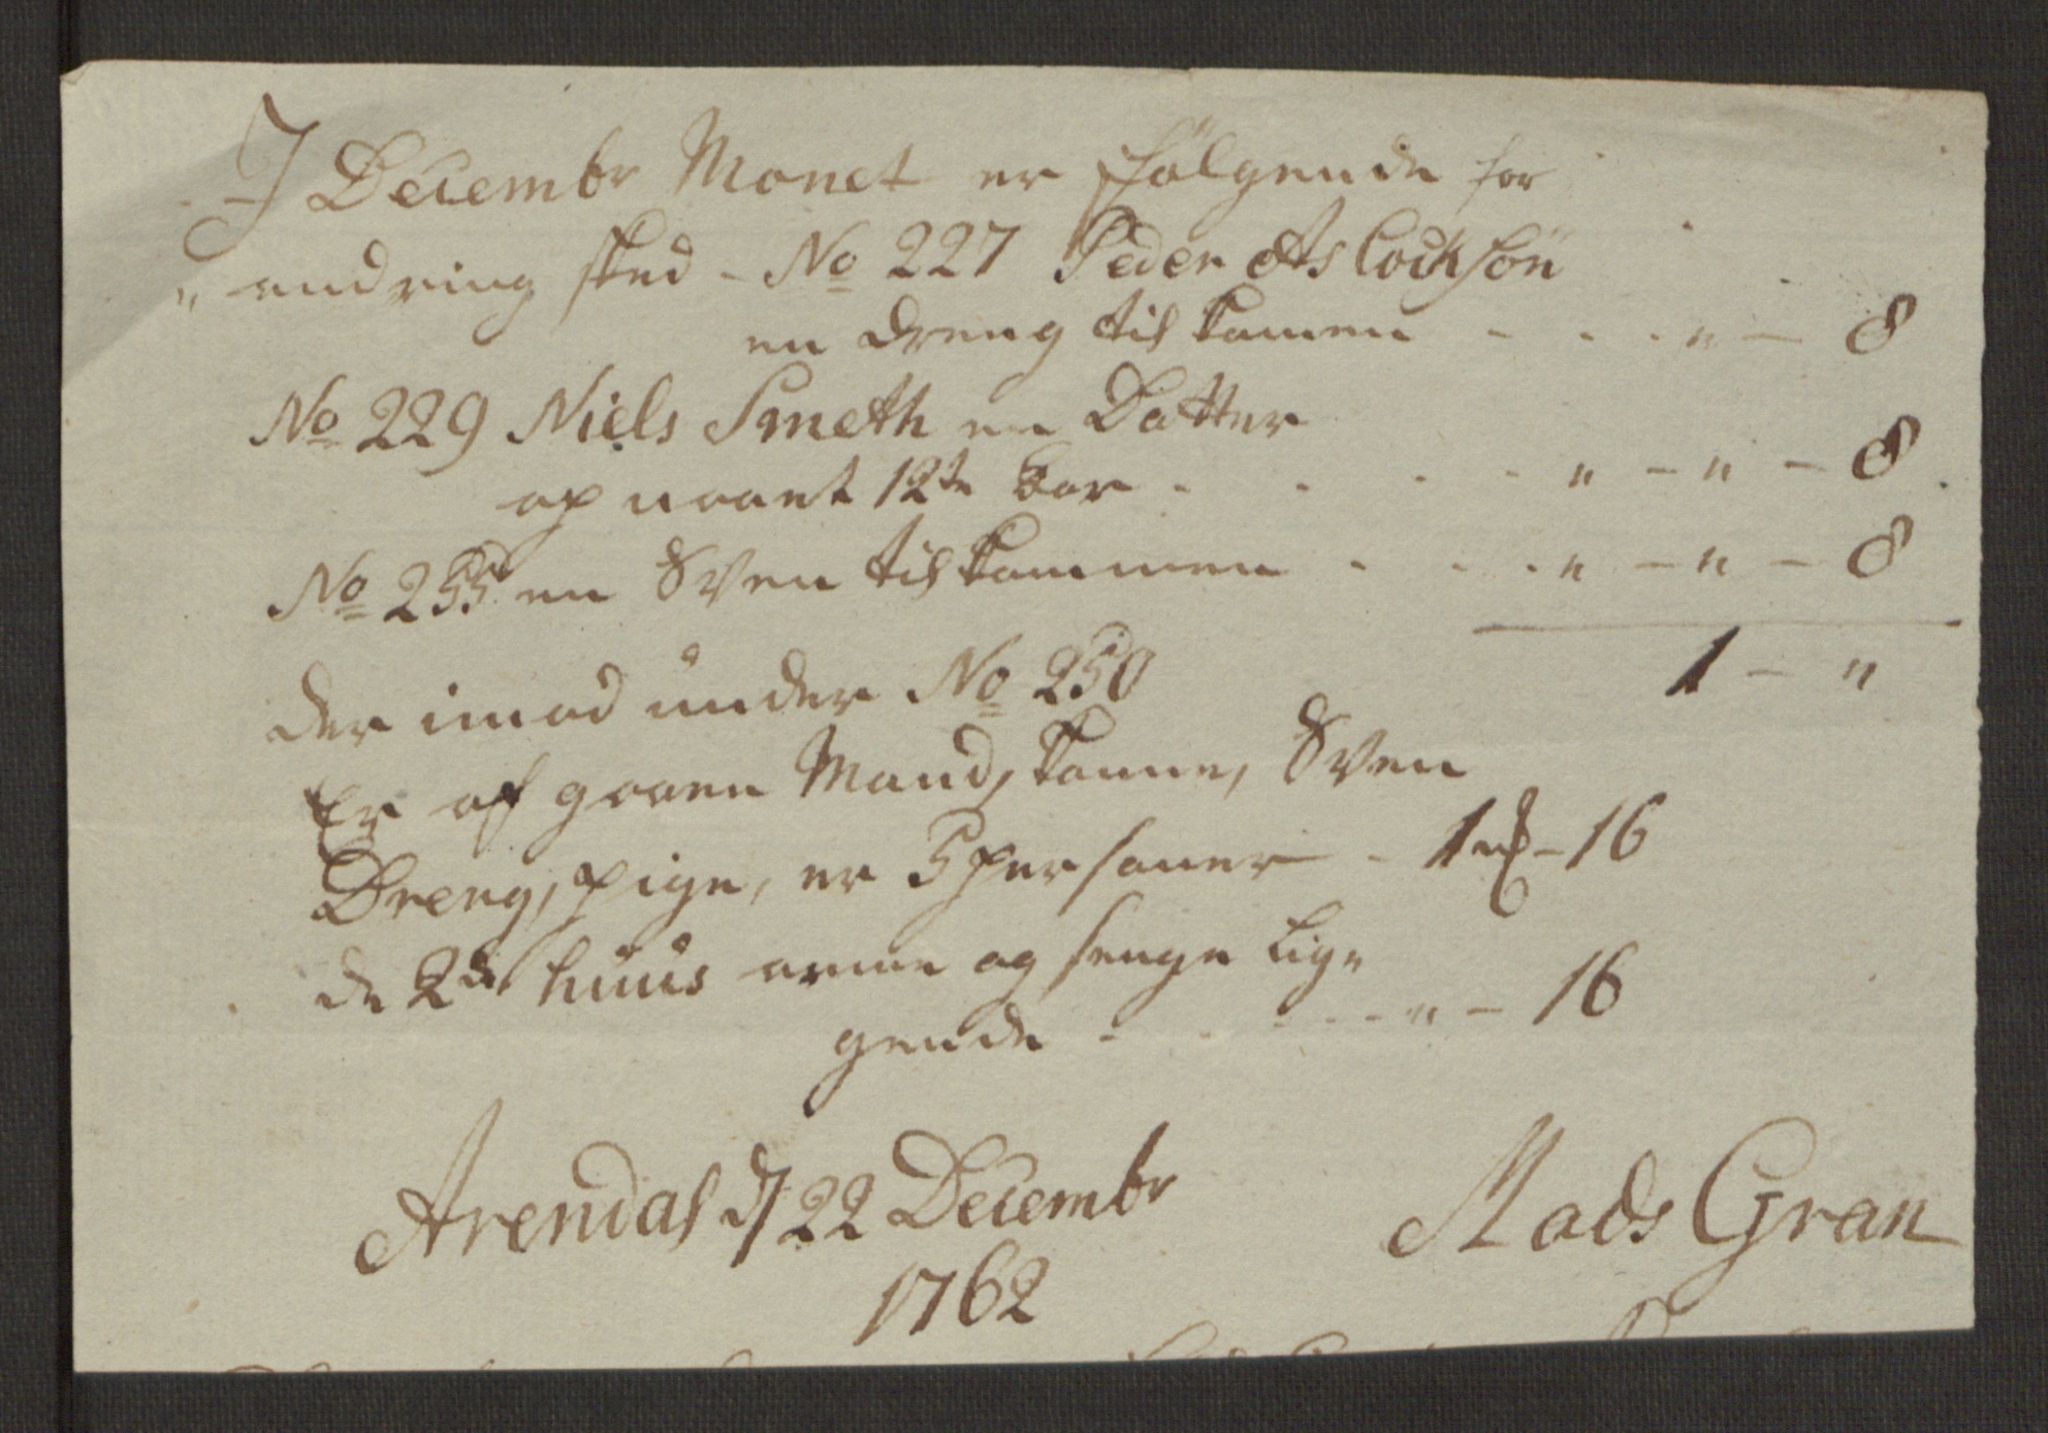 I Decembr Monet er følgende for
„ andring sked - No 227 Peder Aslocksön
en dreng til kamen - . . „ - 8
No 229 Niels Smeth en Datter
op naaet 12te Aar . . . - „ - „ - 8.
No 255 en Sven til kommen . . . „ - „ - 8
1 - „
der imod under No 250
Er af gaaen Mand, kaane, Sven
Dreng, pige, er 5 personer - 1 - 16
de 2de huus arme og senge Lig„
gende - . . - - „ - 16
Arendal d 22 Decembr
1762
Mads Gran